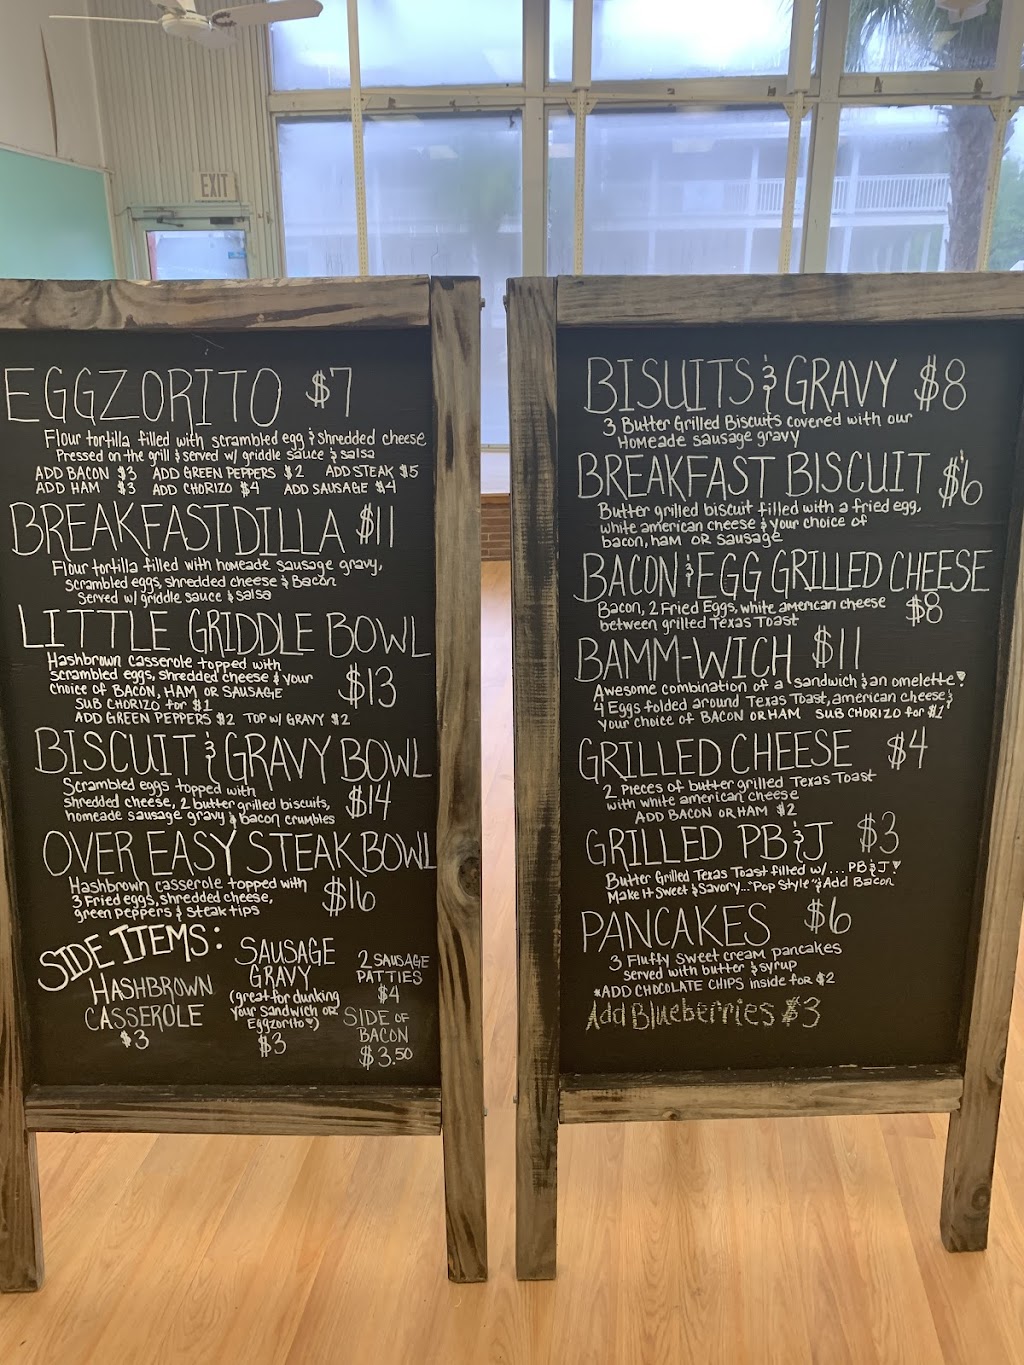 EXIT
EGGZORITO $7
Flour tortilla filled with scrambled egg & shredded cheese
Pressed on the grill & served w/ griddle sauce & salsa
ADD BACON $3 ADD GREEN PEPPERS $2 ADD STEAK $5
ADD HAM $3 ADD CHORIZO $4 ADD SAUSAGE $4
BREAKFASTDILLA $11
Flour tortilla filled with homeade sausage gravy,
scrambled eggs, shredded cheese & Bacon
Served w/ griddle sauce & salsa
LITTLE GRIDDLE BOWL
Hashbrown casserole topped with
scrambled eggs, shredded cheese & your
choice of BACON, HAM OR SAUSAGE
$13
SUB CHORIZO for $1
ADD GREEN PEPPERS $2 TOP W/ GRAVY $2
BISCUIT & GRAVY BOWL
Scrambled eggs topped with
shredded cheese, 2 butter grilled biscuits,
homeade sausage gravy & bacon crumbles
$14
OVER EASY STEAK BOWL
Hashbrown casserole topped with
3 Fried eggs, shredded cheese,
green peppers & steak tips
$16
SIDE ITEMS:
HASHBROWN
CASSEROLE
$3
SAUSAGE
GRAVY
(great for dunking
your sandwich or
Eggzorito♥)
$3
2 SAUSAGE
PATTIES
$4
SIDE OF
BACON
$3.50
BISUITS & GRAVY $8
3 Butter Grilled Biscuits covered with our
Homeade sausage gravy
BREAKFAST BISCUIT $6
Butter grilled biscuit filled with a fried egg,
white american cheese & your choice of
bacon, ham OR Sausage
BACON & EGG GRILLED CHEESE
Bacon, 2 Fried Eggs, white american cheese
between grilled Texas Toast
$8
BAMM-WICH $11
Awesome combination of a sandwich & an omelette♥
4 Eggs folded around Texas Toast, american cheese &
your choice of BACON OR HAM SUB CHORIZO for $1
GRILLED CHEESE $4
2 Pieces of butter grilled Texas Toast
with white american cheese
ADD BACON OR HAM $2
GRILLED PB & J $3
Butter Grilled Texas Toast filled w/... PB & J♥
Make It Sweet & Savory..."Pop Style" & Add Bacon
PANCAKES $6
3 Fluffy Sweet cream pancakes
served with butter & syrup
*ADD CHOCOLATE CHIPS inside for $2
Add Blueberries $3